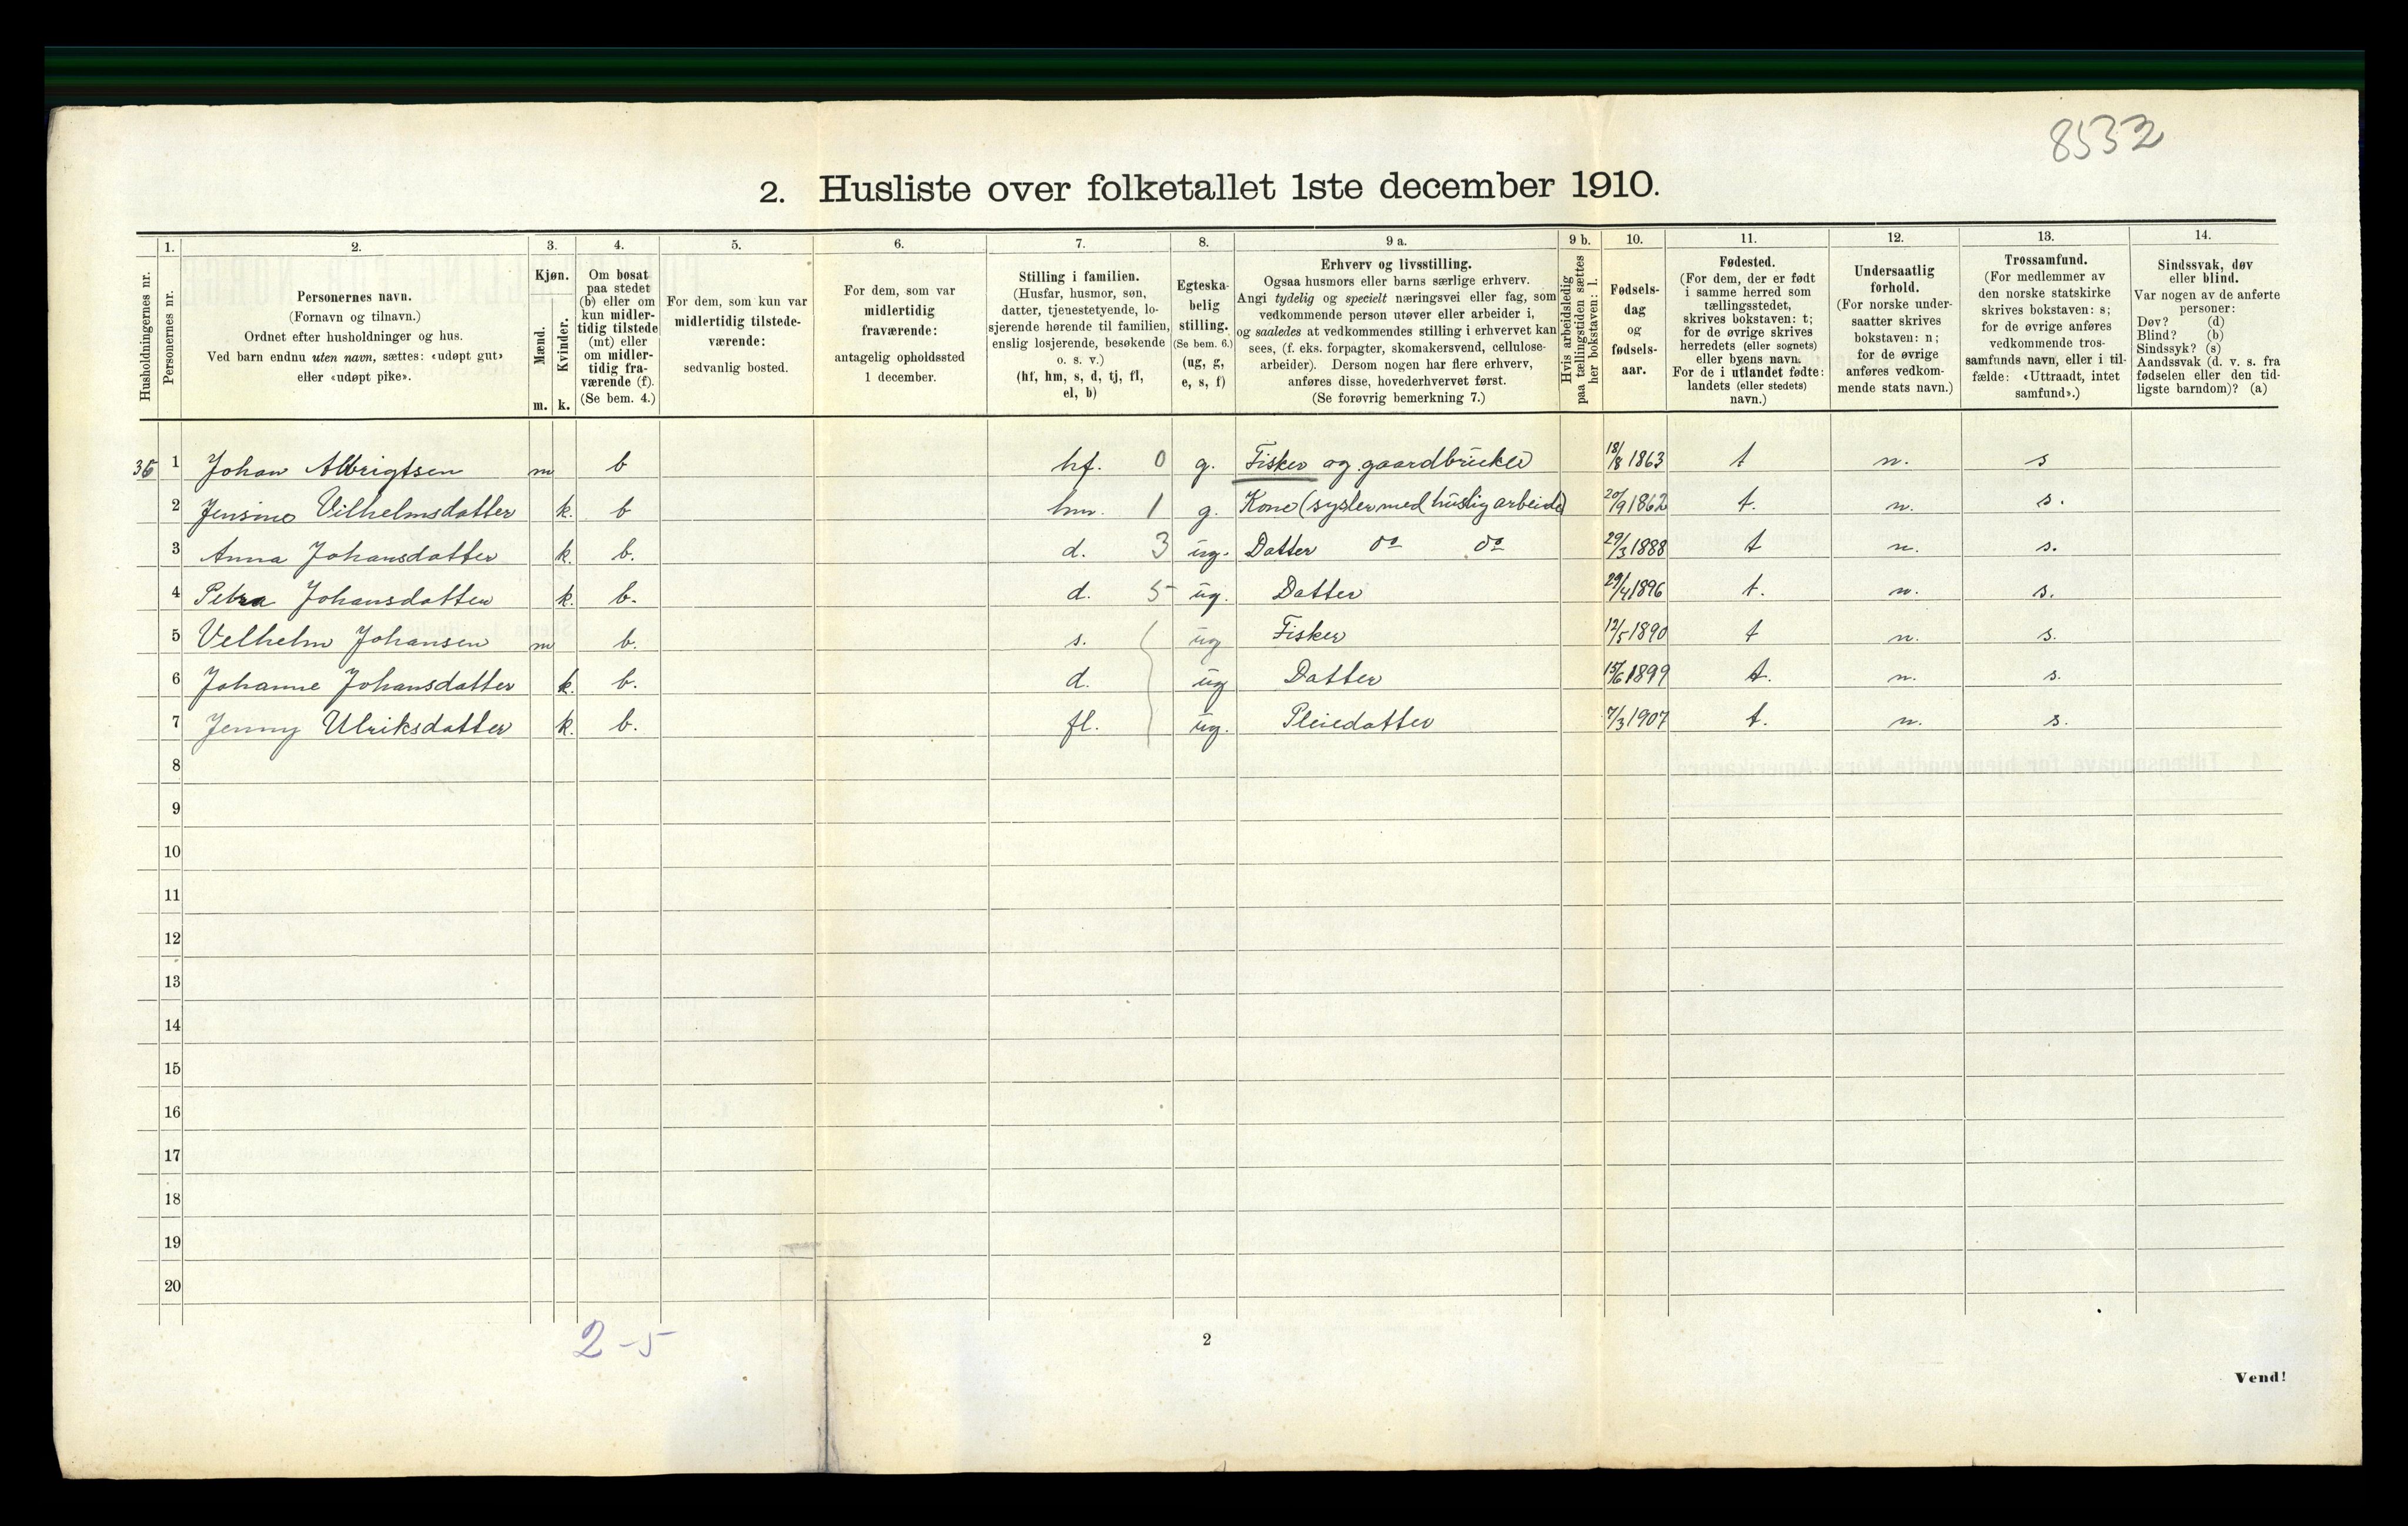 8532
2. Husliste over folketallet 1ste december 1910.
Husholdningernes nr.
1. Personernes nr.
2. Personernes navn.
(Fornavn og tilnavn.)
Ordnet efter husholdninger og hus.
Ved barn endnu uten navn, sættes: «udøpt gut»
eller «udøpt pike».
3. Kjøn.
Mænd. m.
Kvinder. k.
4. Om bosat
paa stedet
(b) eller om
kun midler-
tidig tilstede
(mt) eller
om midler-
tidig fra-
værende (f).
(Se bem. 4.)
5. For dem, som kun var
midlertidig tilstede-
værende:
sedvanlig bosted.
6. For dem, som var
midlertidig
fraværende:
antagelig opholdssted
1 december.
7. Stilling i familien.
(Husfar, husmor, søn,
datter, tjenestetyende, lo-
sjerende hørende til familien,
enslig losjerende, besøkende
o. s. v.)
(hf, hm, s, d, tj, fl,
el, b)
8. Egteska-
belig
stilling.
(Se bem. 6.)
(ug, g,
e, s, f)
9 a. Erhverv og livsstilling.
Ogsaa husmors eller barns særlige erhverv.
Angi tydelig og specielt næringsvei eller fag, som
vedkommende person utøver eller arbeider i,
og saaledes at vedkommendes stilling i erhvervet kan
sees, (f. eks. forpagter, skomakersvend, cellulose-
arbeider). Dersom nogen har flere erhverv,
anføres disse, hovederhvervet først.
(Se forøvrig bemerkning 7.)
9 b. Hvis arbeidsledig
paa tællingstiden sættes
her bokstaven: l.
10. Fødsels-
dag
og
fødsels-
aar.
11. Fødested.
(For dem, der er født
i samme herred som
tællingsstedet,
skrives bokstaven: t;
for de øvrige skrives
herredets (eller sognets)
eller byens navn.
For de i utlandet fødte:
landets (eller stedets)
navn.)
12. Undersaatlig
forhold.
(For norske under-
saatter skrives
bokstaven: n;
for de øvrige
anføres vedkom-
mende stats navn.)
13. Trossamfund.
(For medlemmer av
den norske statskirke
skrives bokstaven: s;
for de øvrige anføres
vedkommende tros-
samfunds navn, eller i til-
fælde: «Uttraadt, intet
samfund».)
14. Sindssvak, døv
eller blind.
Var nogen av de anførte
personer:
Døv? (d)
Blind? (b)
Sindssyk? (s)
Aandssvak (d. v. s. fra
fødselen eller den tid-
ligste barndom)? (a)
1 Johan Albrigtsen m b hf. 0 g. Fisker og gaardbruker 18/8 1863 t n. s
2 Jensine Vilhelmsdatter k. b hm. 1 g. Kone (sysler med huslig arbeide) 20/9 1862 t. n. s.
3 Anna Johansdatter k. b. d. 3 ug. Datter do do 29/3 1888 t n. s.
4 Petra Johansdatter k. b. d. 5 ug. Datter 29/4 1896 t. n. s.
5 Velhelm Johansen m b. s. ug Fisker 12/5 1890 t n. s.
6 Johanne Johansdatter k. b. d. ug Datter 15/6 1899 t. n. s.
7 Jenny Ulriksdatter k. b. fl. ug. Pleiedatter 7/3 1907 t. n. s.
8
9
10
11
12
13
14
15
16
17
18
19
20
2-5
2
Vend!